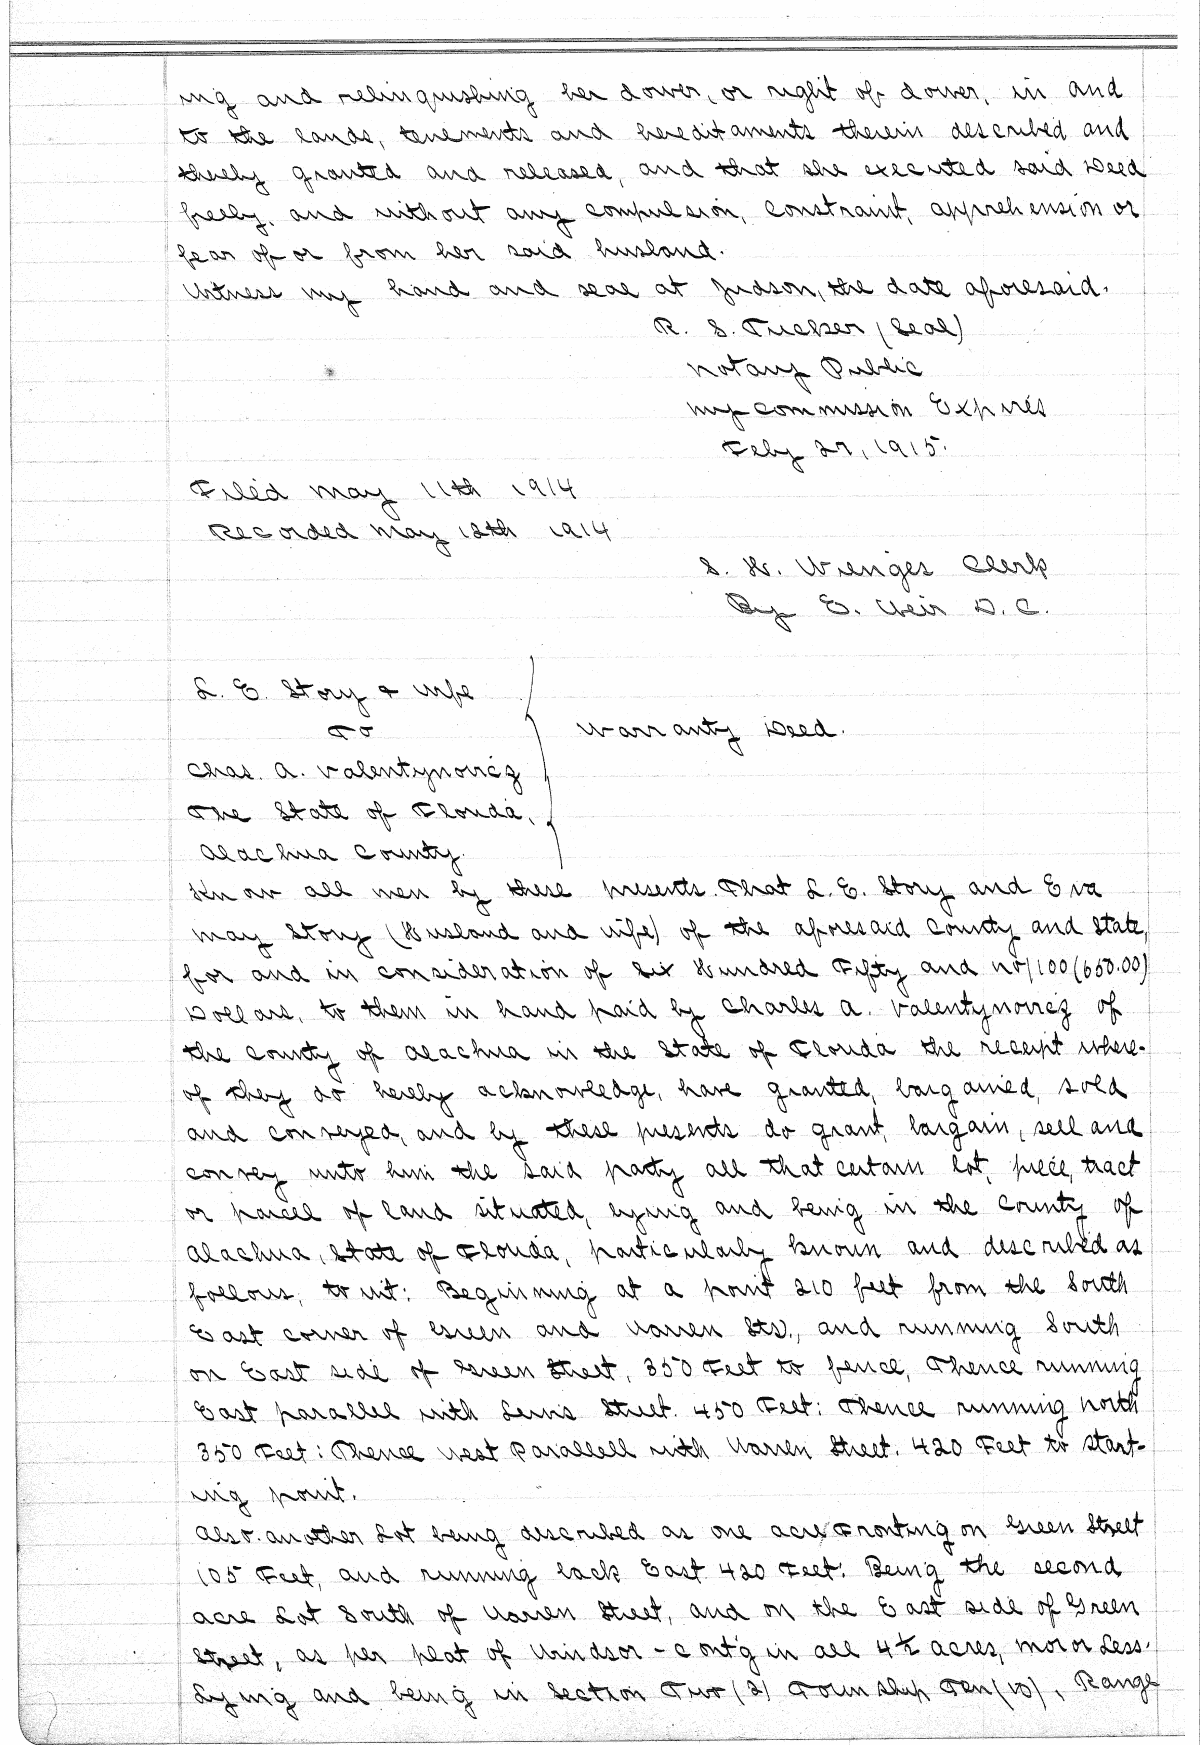 ing and relinquishing her dower, or right of dower, in and
to the lands, tenements and hereditaments therein described and
thereby granted and released, and that she executed said Deed
freely, and without any compulsion, constraint, apprehension or
fear of or from her said husband.
Witness my hand and seal at Judson, the date aforesaid.
R. S. Tucker (Seal)
Notary Public
My Commission Expires
Feby 27, 1915.
Filed May 11th 1914
Recorded May 12th 1914
S. H. Wienges Clerk
By E. Weir D. C.
L. E. Story & Wife
To
Warranty Deed.
Chas. A. Valentynovicz
The State of Florida,
Alachua County.
Know all men by these presents. That L. E. Story and Eva
May Story (Husband and wife) of the aforesaid County and State,
for and in consideration of Six Hundred Fifty and no/100 (650.00)
Dollars, to them in hand paid by Charles A. Valentynovicz of
the County of Alachua in the State of Florida the receipt where-
of they do hereby acknowledge, have granted, bargained, sold
and conveyed, and by these presents do grant, bargain, sell and
convey unto him the said party all that certain lot, piece, tract
or parcel of land situated, lying and being in the County of
Alachua, State of Florida, particularly known and described as
follows, to wit: Beginning at a point 210 feet from the South
East corner of Green and Warren Sts., and running South
on East side of Green Street, 350 Feet to fence, Thence running
East parallel with Lewis Street. 450 Feet: Thence running north
350 Feet: Thence West Parallell with Warren Street. 420 Feet to start-
ing point.
Also another Lot being described as one acre Fronting on Green Street
105 Feet, and running back East 420 Feet: Being the second
acre Lot South of Warren Street, and on the East side of Green
Street, as per plat of Windsor - cont'g in all 4½ acres, mor or Less.
Lying and being in Section Two (2) Township Ten (10), Range